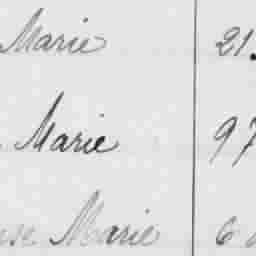 Marie 21
Marie 97
se Marie 6